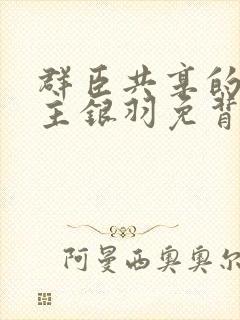 群臣共享的
主银羽免背
阿曼西奥奥尔